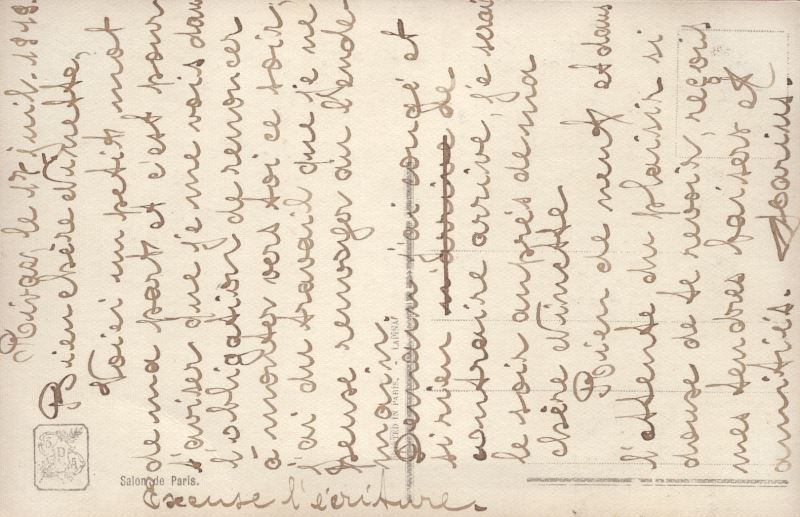 le 17 Juil. 1919.
Bien chère Ninette,
Voici un petit mot
de ma part et c'est pour
t'aviser que je me vois dans
l'obligation de renoncer
à monter vers toi ce soir,
j'ai du travail que je ne
peuse renvoyer au lende-
main.
j'ai congé et
si rien de
contraire arrive, je serai
le soir auprès de ma
chère Ninette
Rien de neuf et dans
l'attente du plaisir si
douse de te revoir, reçois
mes tendres baisers et
amitiés. Marius.
Excuse l'écriture.
Salon de Paris.
IN PARIS. - LAPINA